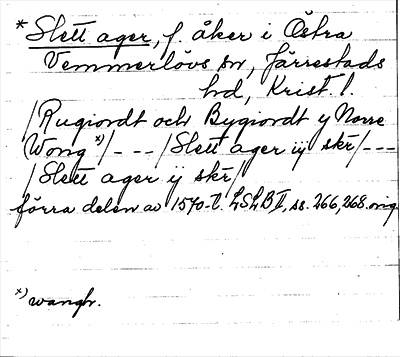 * Slett ager, f. åker i Östra
Vemmerlövs sn, Järrestads
hd, Krist. l.
/Rugiordt och Bygiordt y Norre
Wong x)/ - - - /Slett ager iij skr/ - - -
/Slett ager ij skr/
förra delen av 1570-t. LSLB II, ss. 266, 268. orig
x) wangh.